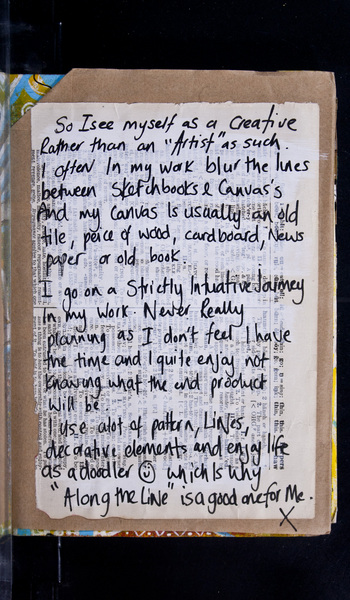 So I see myself as a Creative
Rather than an "Artist" as such.
I often In my work blur the lines
between Sketchbooks & Canvas's
And my canvas Is usually an old
tile, peice of wood, cardboard, News
paper or old book.
I go on a Strictly Intuative Journey
In my work. Never Really
planning as I don't feel I have
the time and I quite enjoy not
knowing what the end product
will be.
I use alot of pattern, Lines,
decorative elements and enjoy life
as a doodler ☺ which Is why
"Along the Line" is a good one for Me.
X